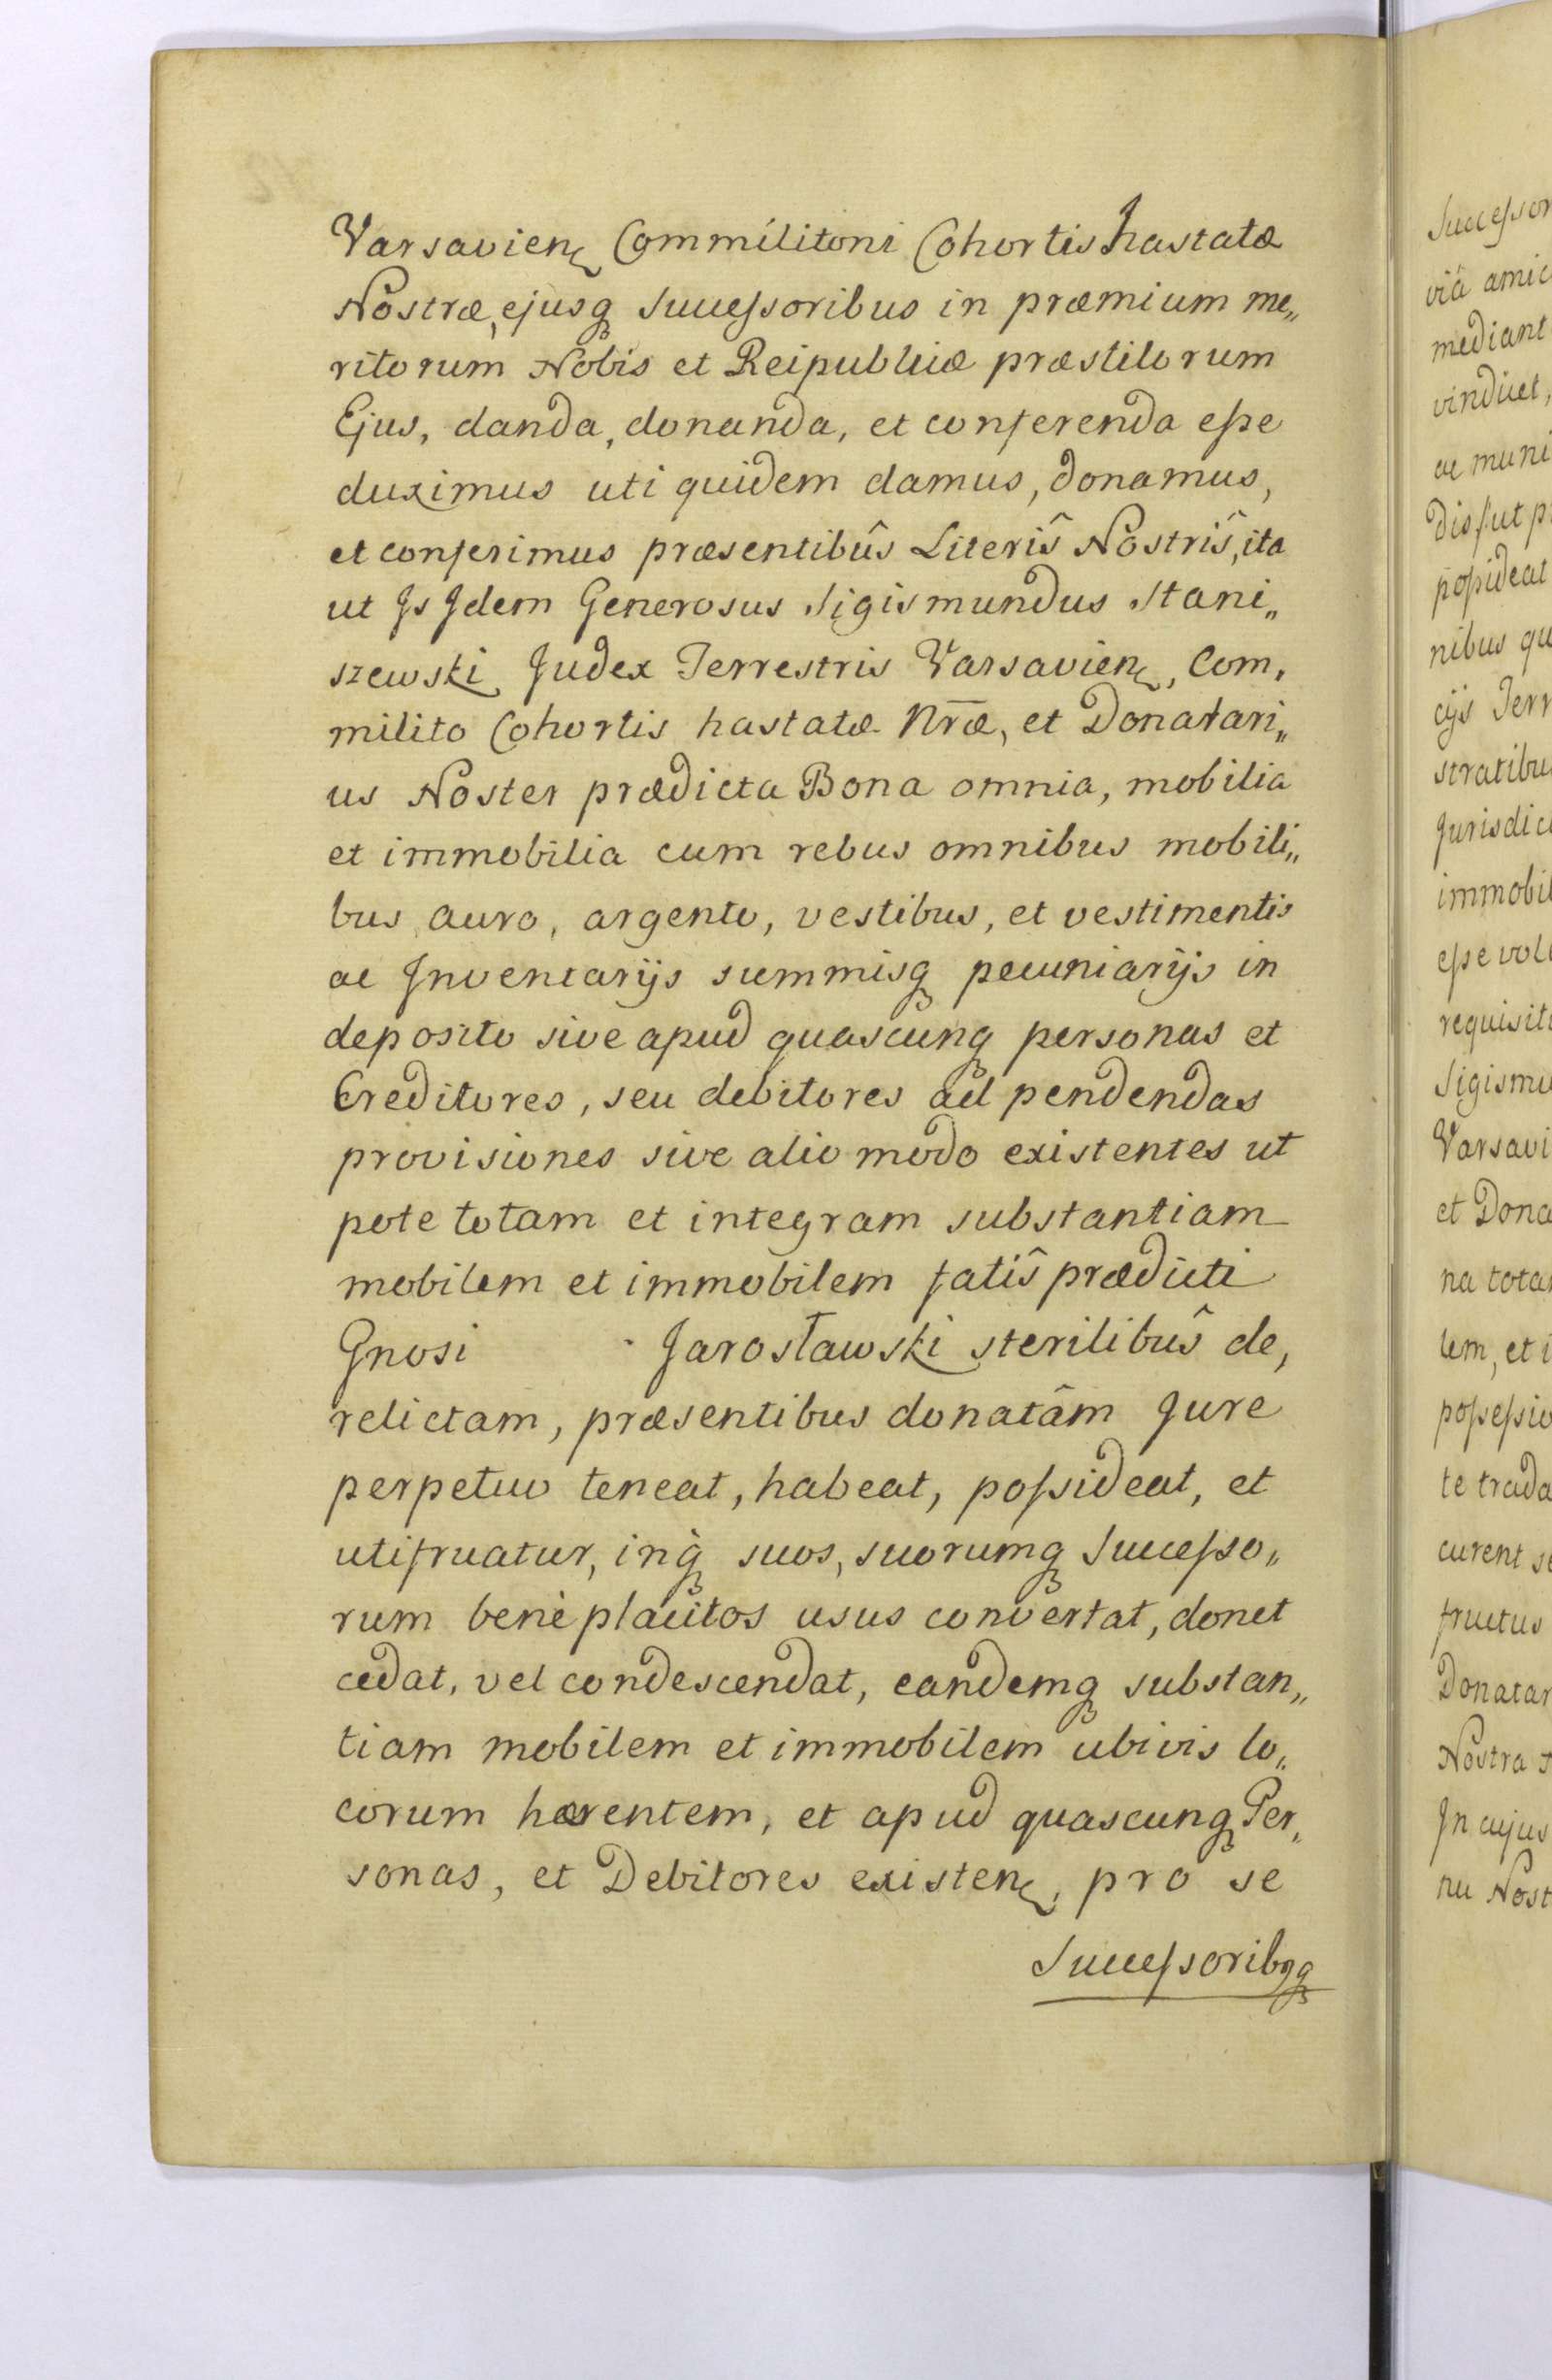 Varsavien Commilitoni Cohortis hastatæ
Nostræ, ejusq Successoribus in præmium me„
ritorum Nobis et Reipublicæ præstitorum
Ejus, danda, donanda, et conferenda esse
duximus uti quidem damus, donamus,
et conferimus præsentibûs Literîs Nostrîs, ita
ut Js Jdem Generosus Sigismundus Stani„
szewski Judex Terrestris Varsavien, Com,
milito Cohortis hastatæ Nr̄æ, et Donatari„
us Noster prædicta Bona omnia, mobilia
et immobilia cum rebus omnibus mobili„
bus, auro, argento, vestibus, et vestimentis
ac Jnventarijs summisq pecuniarijs in
deposito sive apud quascunq personas et
Creditores, seu debitores ad pendendas
provisiones sive alio modo existentes ut
pote totam et integram substantiam
mobilem et immobilem fatîs prædicti
Gnosi Jarosławski sterilibûs de,
relictam, præsentibus donatâm Jure
perpetuo teneat, habeat, possideat, et
utifruatur, inq̀ suos, suorumq Successo„
rum benè placitos usus convertat, donet
cedat, vel condescendat, eandemq substan„
tiam mobilem et immobilem ubivis lo„
corum hærentem, et apud quascunq Per„
sonas, et Debitores existen, pro se
Successoribꝰq
Successor
viâ amic
mediant
vindicet,
ac muni
dis sut p
possideat
nibus qu
cijs Terr
stratibu
Jurisdic
immobil
esse vol
requisit
Sigismu
Varsavi
et Dona
na tota
lem, et i
possessio
te trada
curent se
fructus
Donatar
Nostra
Jn cujus
nu Nost